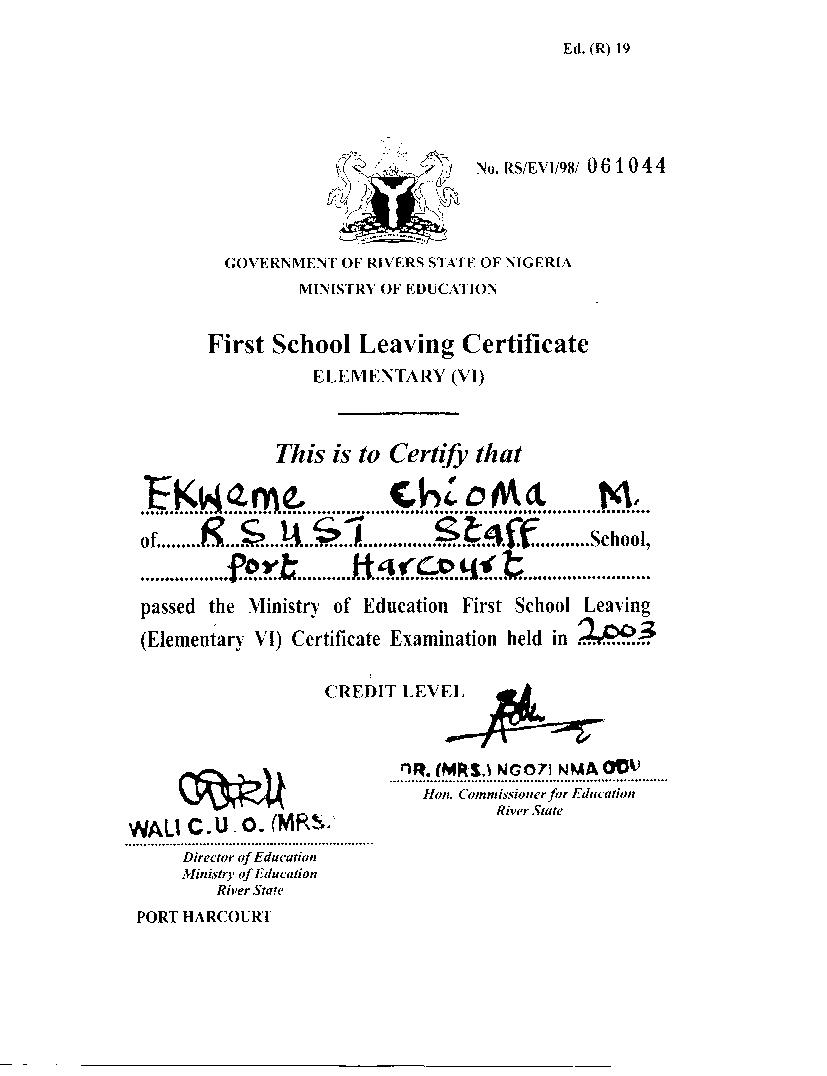 Ed. (R) 19
No. RS/EVI/98/ 061044
GOVERNMENT OF RIVERS STATE OF NIGERIA
MINISTRY OF EDUCATION
First School Leaving Certificate
ELEMENTARY (VI)
This is to Certify that
EKweme ChiOMa M.
of RSUST Staff School,
Port Harcourt
passed the Ministry of Education First School Leaving
(Elementary VI) Certificate Examination held in 2003
CREDIT LEVEL
DR. (MRS.) NGOZI NMA ODU
Hon. Commissioner for Education
River State
WALI C.U.O. (MRS.
Director of Education
Ministry of Education
River State
PORT HARCOURT